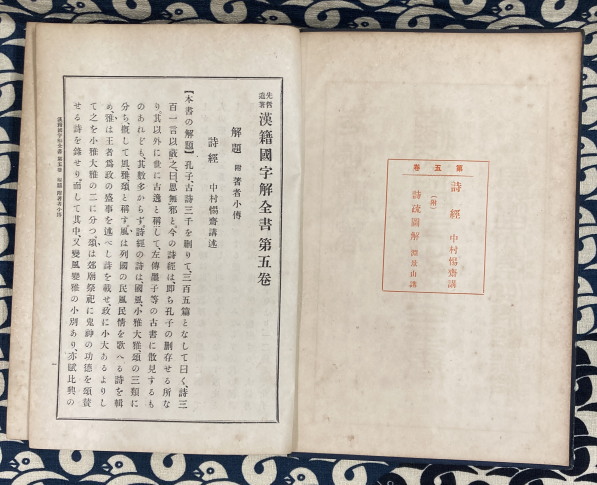 第五卷
詩經 中村惕齋講
(附)
詩疏圖解 淵景山講
先哲遺著
漢籍國字解全書 第五卷
解題 附著者小傳
詩經 中村惕齋講述
【本書の解題】孔子、古詩三千を刪りて、三百五篇となして曰く、詩三
百一言以蔽之、曰思無邪と。今の詩經は、卽ち孔子の刪存せる所な
り。其以外に世に古逸と稱して、左傳、墨子等の古書に散見するも
のあれども、其數多からず。詩經の詩は國風、小雅大雅頌の三類に
分ち、槪して風、雅、頌と稱す。風は列國の民風民情を歌へる詩を輯
め、雅は王者爲政の盛事を述べし詩を載せ、政に小大あるよりし
て之を小雅大雅の二に分つ。頌は郊廟祭祀に鬼神の功德を頌賛
せる詩を錄せり。而して其中、又變風變雅の小別あり、亦賦比興の
漢籍國字解全書 第五卷 解題 附著者小傳
一